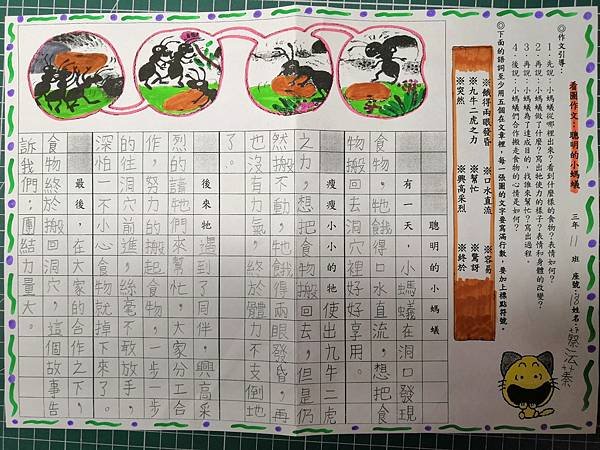 ◎作文引導:
看圖作文:聰明的小螞蟻
三年 11 班 座號:18 姓名:蔡沄蓁
1.先說:小螞蟻從哪裡出來?看到什麼樣的食物?表情如何?
2.再說:小螞蟻做了什麼?寫出牠使力的樣子?表情和身體的改變?
3.再說:小螞蟻為了達成目的,找誰來幫忙?寫出過程。
4.後說:小螞蟻們合作搬走食物的心情是如何?
◎下面的語詞至少用五個在文章裡,每一張圖的文字要寫滿行數,要加上標點符號。
※餓得兩眼發昏 ※口水直流 ※容易
※九牛二虎之力 ※幫忙 ※驚訝
※突然 ※興高采烈 ※終於
聰明的小螞蟻
有一天,小螞蟻在洞口發現
食物,牠餓得口水直流,想把食
物搬回去洞穴裡好好享用。
瘦瘦小小的牠使出九牛二虎
之力,想把食物搬回去,但是仍
然搬不動,牠餓得兩眼發昏,再
也沒有力氣,終於體力不支倒地
了。
後來牠遇到了同伴,興高采
烈的請牠們來幫忙,大家分工合
作,努力的搬起食物,一步一步
的往洞穴前進,絲毫不敢放手,
深怕一不小心食物就掉下來了。
最後,在大家的合作之下,
食物終於搬回洞穴。這個故事告
訴我們:團結力量大。